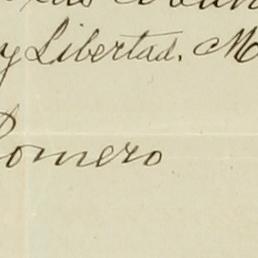 y Libertad. M
Romero